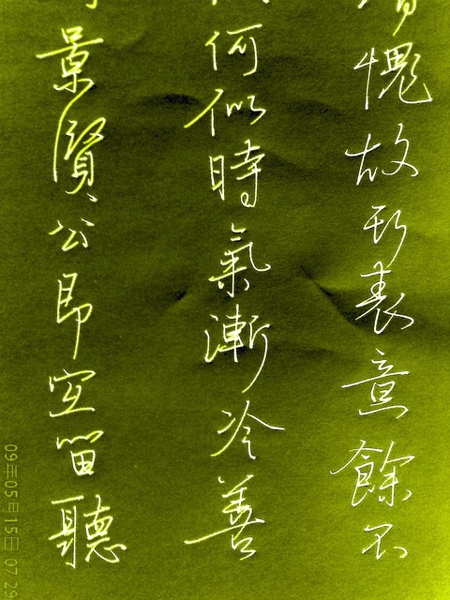 愧故表意餘不
何似時氣漸冷善
景賢公即宜留聽
09年05月15日 07:29